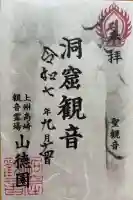 奉拝
聖観音
洞窟観音
令和七年九月
上州高崎
観音霊場
山徳園